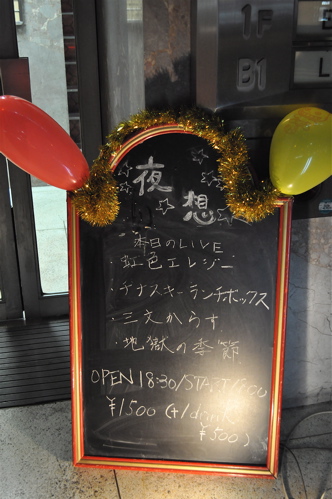 1F
B1
L
夜想
本日のLIVE
・虹色エレジー
・チナスキーランチボックス
・三文からす
・地獄の季節
OPEN18:30/START19:00
¥1500 (+/drink
¥500)